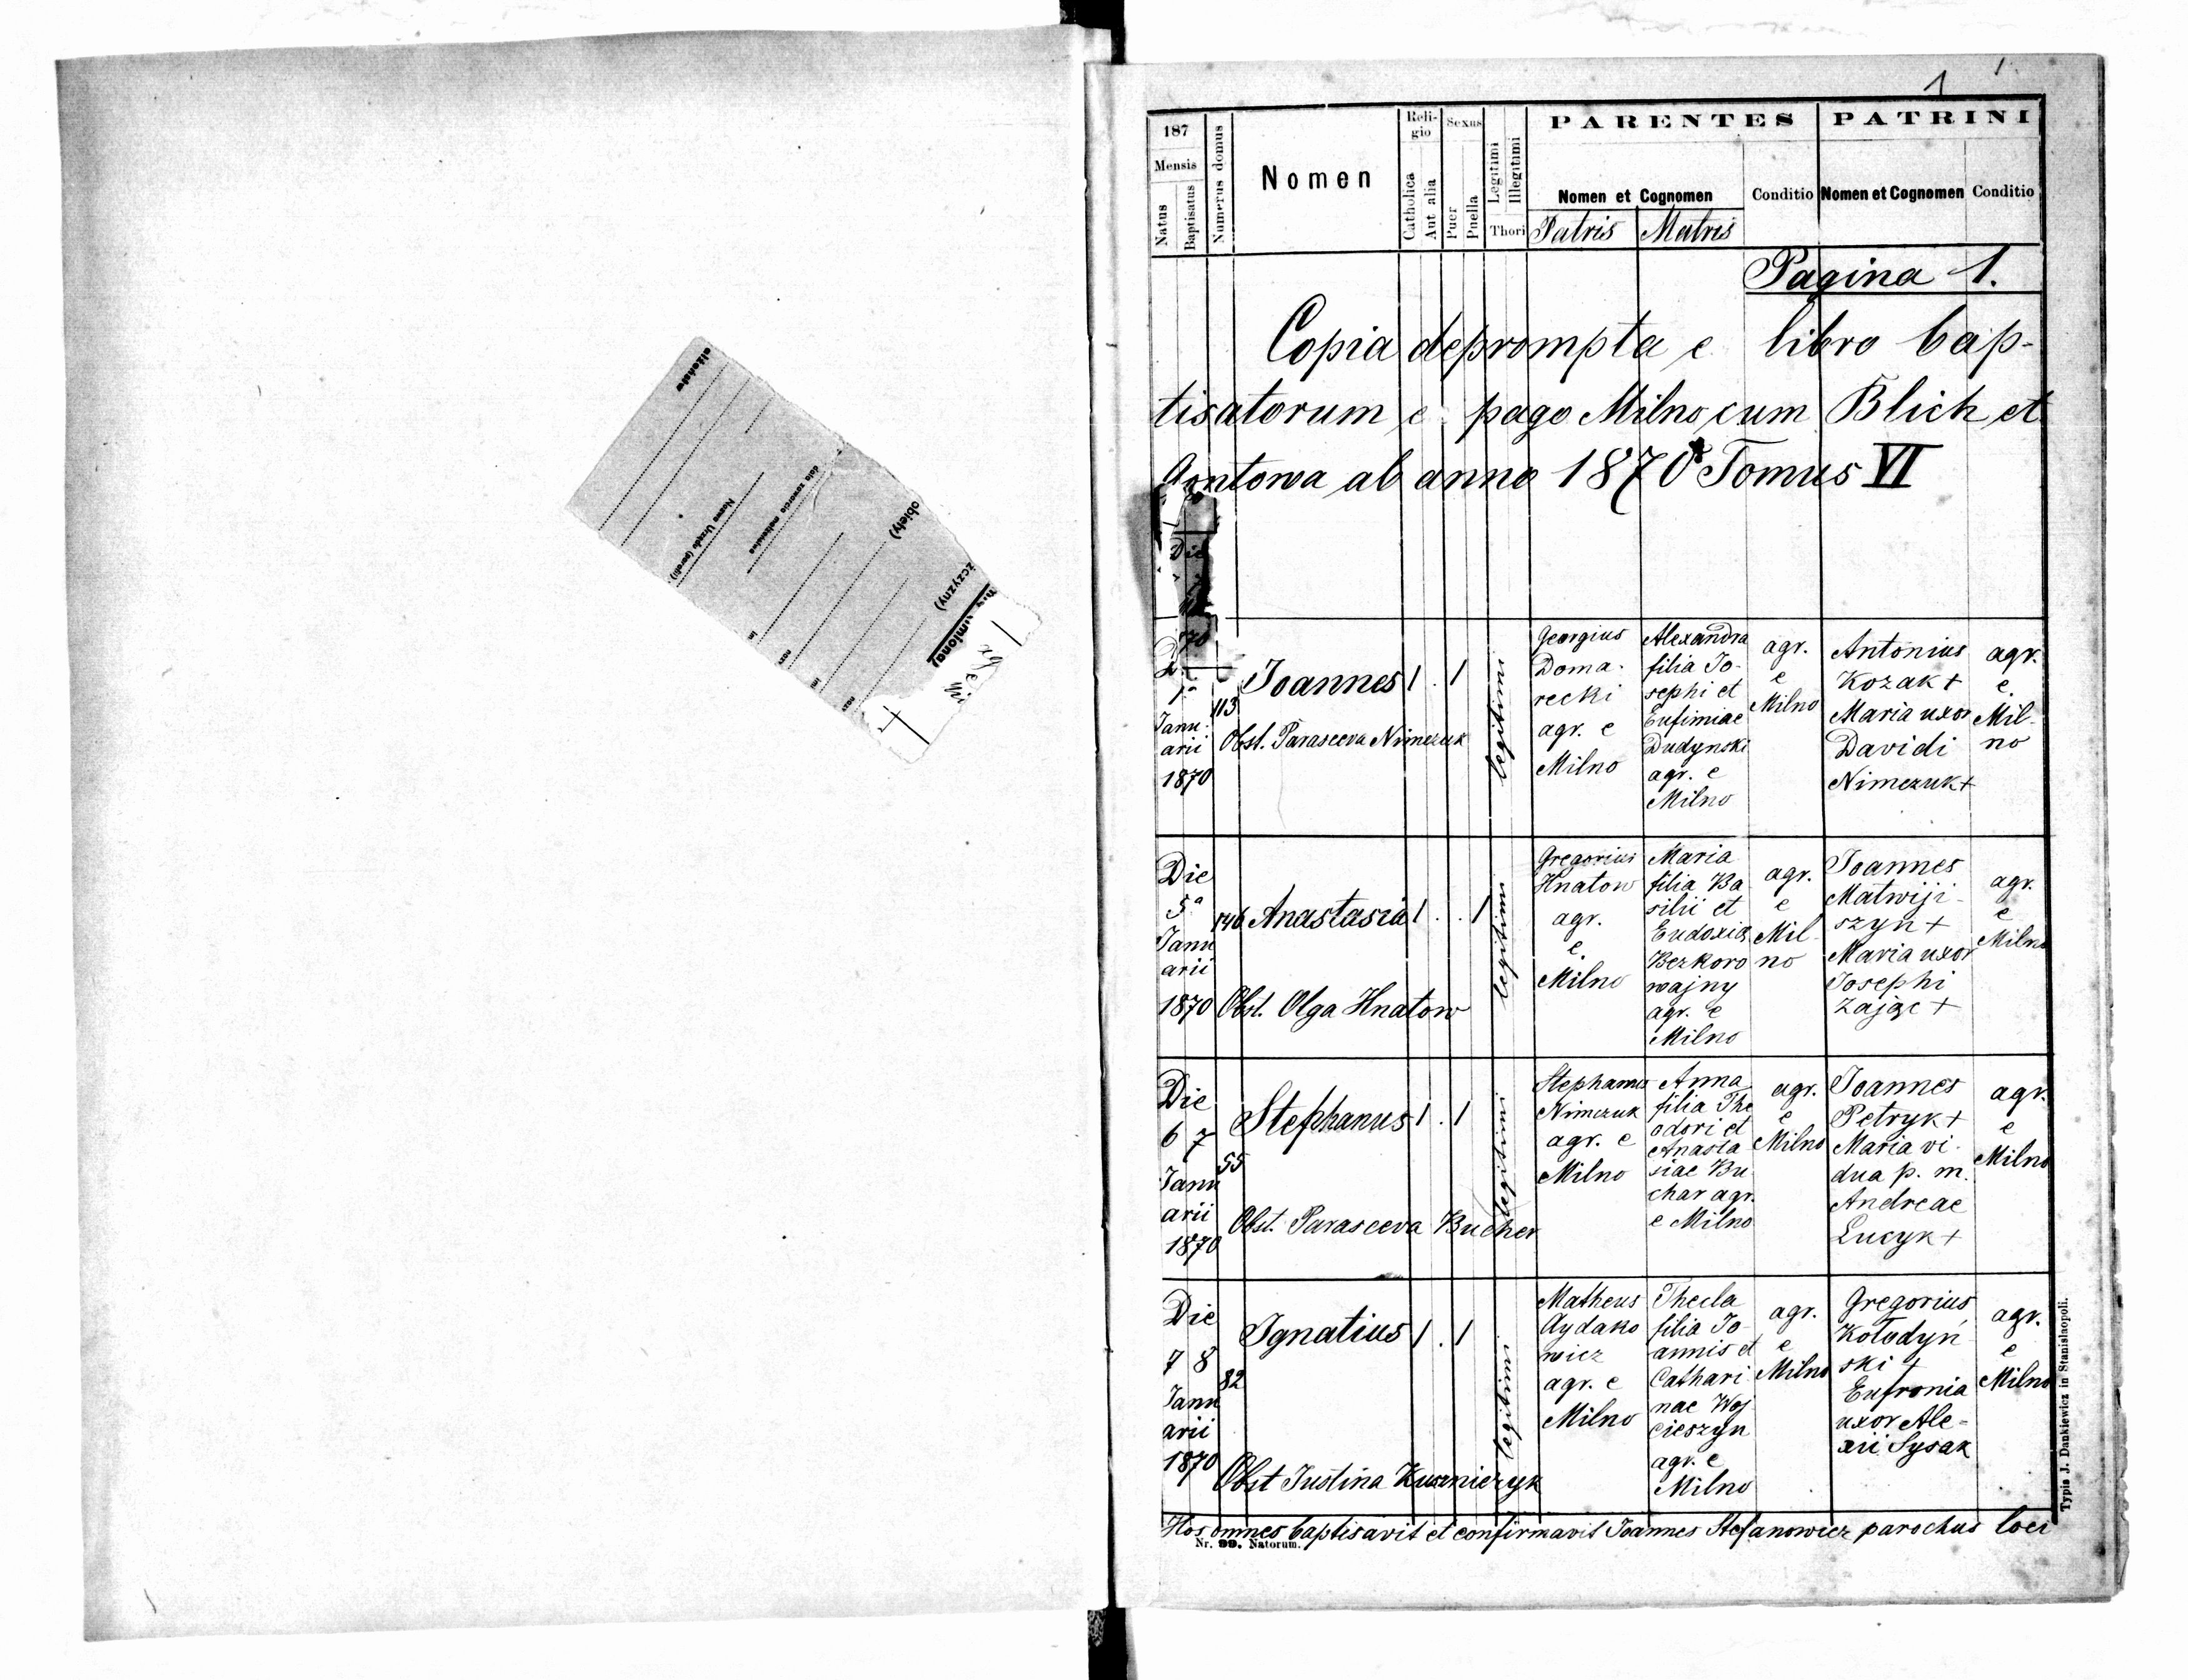 1 1
187
Mensis
Natus
Baptisatus
Numerus domus
Nomen
Reli-
gio
Catholica
Aut alia
Sexus
Puer
Puella
Legitimi
Illegitimi
Thori
PARENTES
Nomen et Cognomen
Patris Matris
Conditio
PATRINI
Nomen et Cognomen
Conditio
Pagina 1.
Copia deprompta e libro bap-
tisatorum e pago Milno cum Blich et
Gontowa ab anno 1870 Tomus VI
Die
1ª
Janu
arii
1870
113
Joannes 1 . 1
Obst. Parasceva Nimczuk
legitimi
Georgius
Doma-
recki
agr. e
Milno
Alexandra
filia Jo-
sephi et
Eufimiae
Dudynski
agr. e
Milno
agr.
e
Milno
Antonius
Kozak +
Maria uxor
Davidi
Nimczuk +
agr.
e
Mil-
no
Die
5ª
Janu
arii
1870
146
Anastasia 1 . . 1
Obst. Olga Hnatow
legitimi
Gregorius
Hnatow
agr.
e
Milno
Maria
filia Ba
silii et
Eudoxia
Bezkoro
wajny
agr. e
Milno
agr.
e
Mil-
no
Joannes
Matwiji-
szyn +
Maria uxor
Josephi
Zając +
agr.
e
Milno
Die
6 7
Janu
arii
1870
55
Stephanus 1 . 1
Obst. Parasceva Bucher
legitimi
Stephanus
Nimczuk
agr. e
Milno
Anna
filia The
odori et
Anasta
siae Bu
char agr.
e Milno
agr.
e
Milno
Joannes
Petryk +
Maria vi-
dua p. m.
Andreae
Lucyk +
agr.
e
Milno
Die
7 8
Janu
arii
1870
82
Ignatius 1 . 1
Obst Justina Kuszniezyk
legitimi
Matheus
Aydako
wicz
agr. e
Milno
Thecla
filia Jo-
annis et
Cathari
nae Woj
cieszyn
agr. e
Milno
agr.
e
Milno
Gregorius
Kołodyń
ski +
Eufronia
uxor Ale-
xii Sysak
agr.
e
Milno
Hos omnes baptisavit et confirmavit Joannes Stefanowicz parochus loci
Nr. 99. Natorum.
Typis J. Dankiewicz in Stanislaopoli.
obiety)
żczyzny)
data zawarcia małżeństwa
Nazwa Urzędu (parafii)